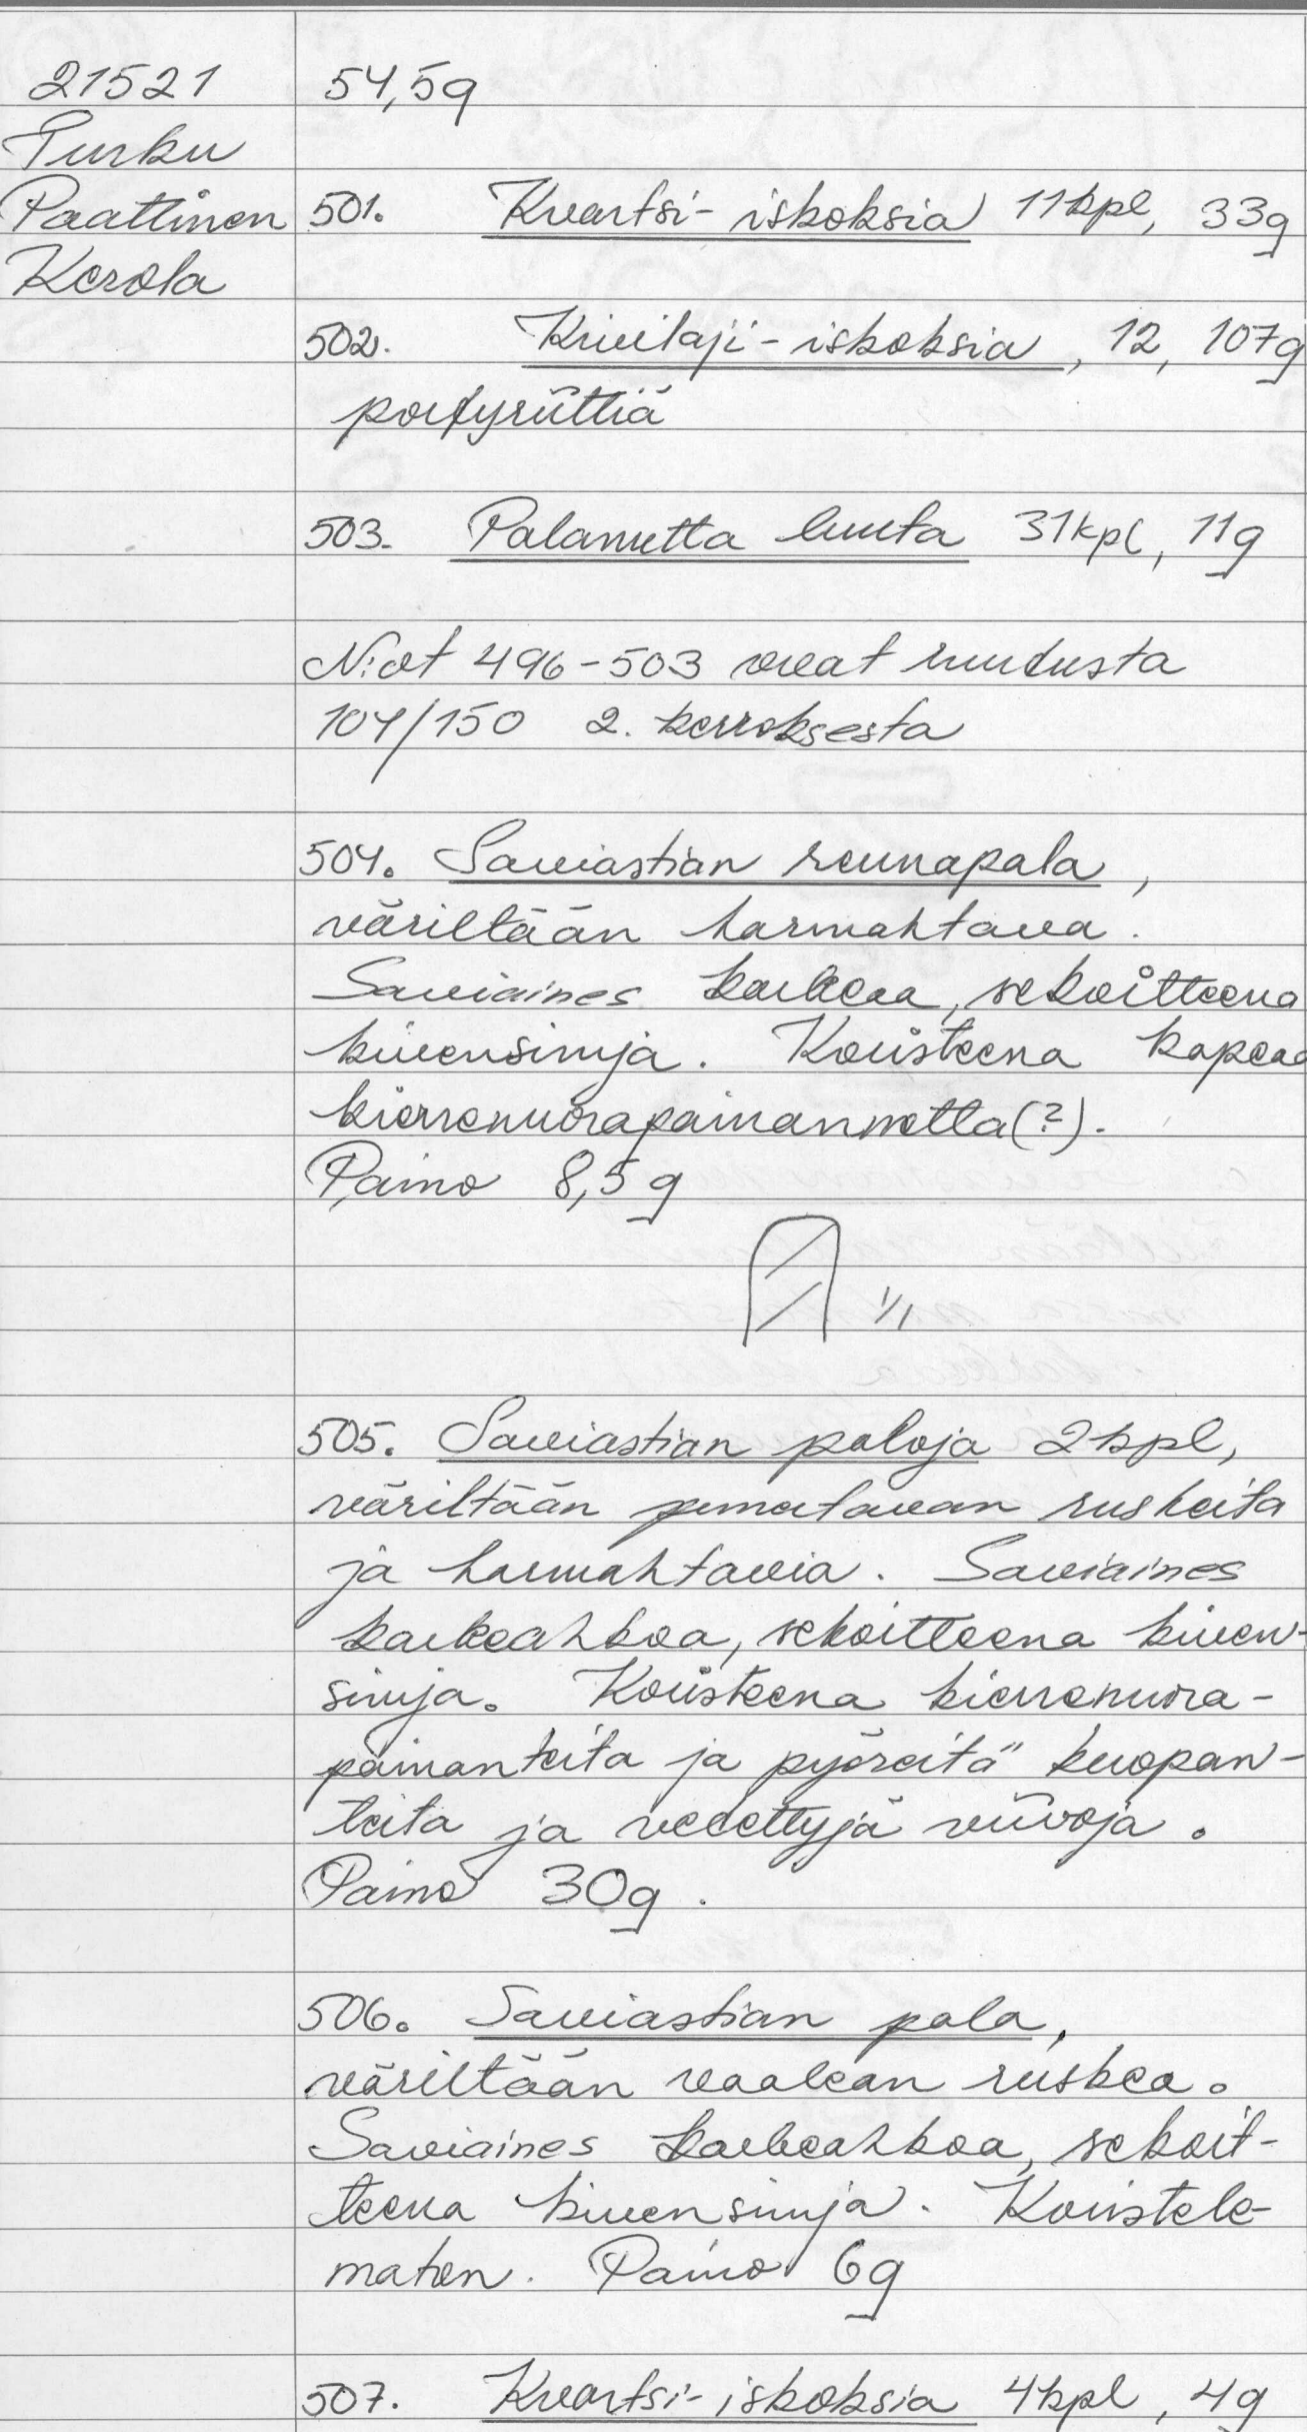 21521
Turku
Paattinen
Kerola
54,5g
501. Kvartsi-iskoksia 11kpl, 33g
502. Kivilaji-iskoksia, 12, 107g
porfyriittiä
503. Palanutta luuta 31kpl, 11g
N:ot 496-503 ovat ruudusta
104/150 2. kerroksesta
504. Saviastian reunapala,
väriltään harmahtava.
Saviaines karkeaa, sekoitteena
kivensiruja. Koristeena kapeaa
kierrenuorapainannetta(?).
Paino 8,5g
1/1
505. Saviastian paloja 2kpl,
väriltään punertavan ruskeita
ja harmahtavia. Saviaines
karkeahkoa, sekoitteena kiven-
siruja. Koristeena kierrenuora-
painanteita ja pyöreitä kuopan-
teita ja vedettyjä viivoja.
Paino 30g.
506. Saviastian pala,
väriltään vaalean ruskea.
Saviaines karkeahkoa, sekoit-
teena kivensiruja. Koristele-
maton. Paino 6g
507. Kvartsi-iskoksia 4kpl, 4g